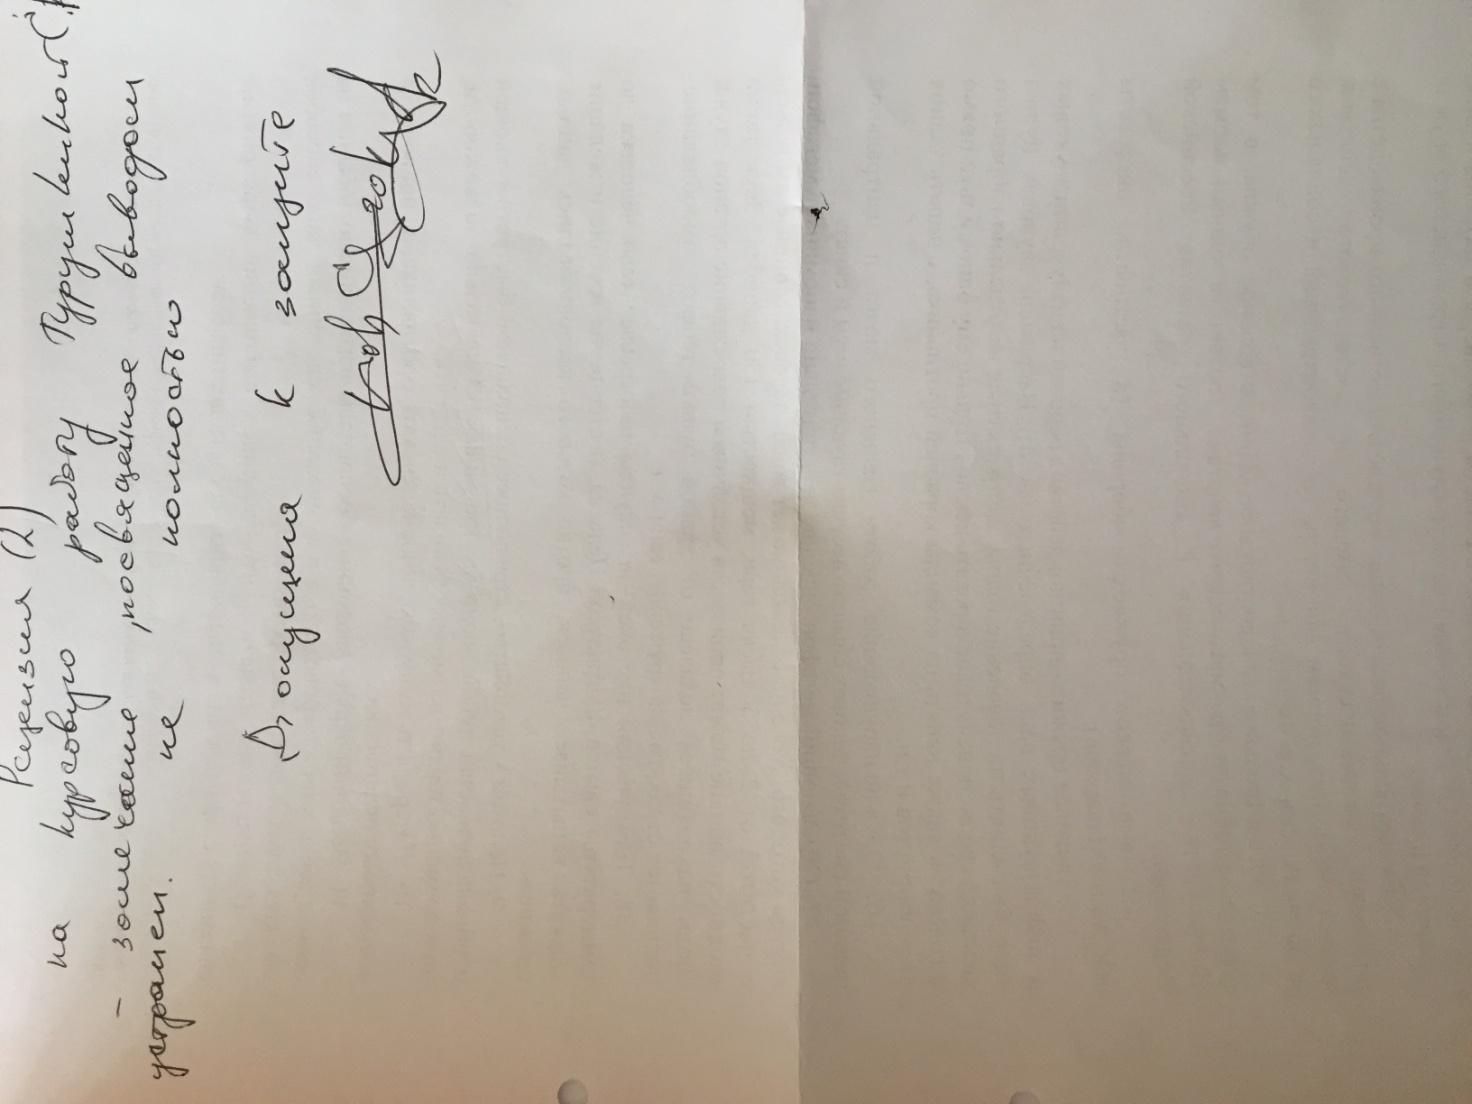 Рецензия (2)
на курсовую работу
- замечание, посвященное выводам
не полностью
устранен.
Допущена к защите